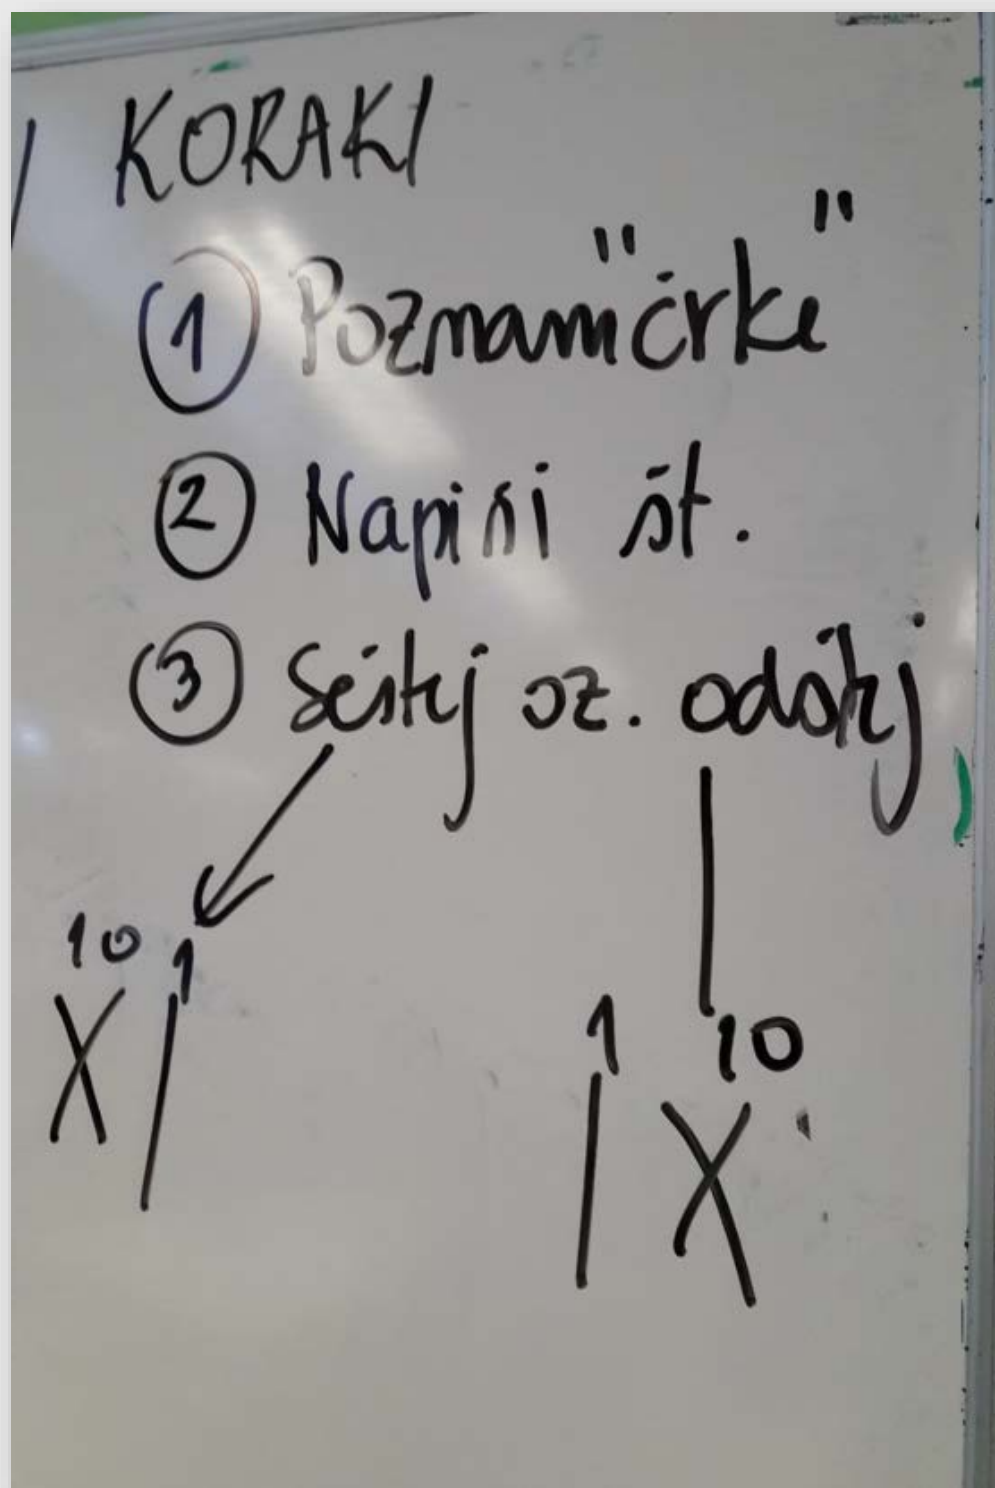 KORAKI
① Poznam "črke"
② Napiši št.
③ Seštej oz. odštej
10 1
X I
1 10
I X